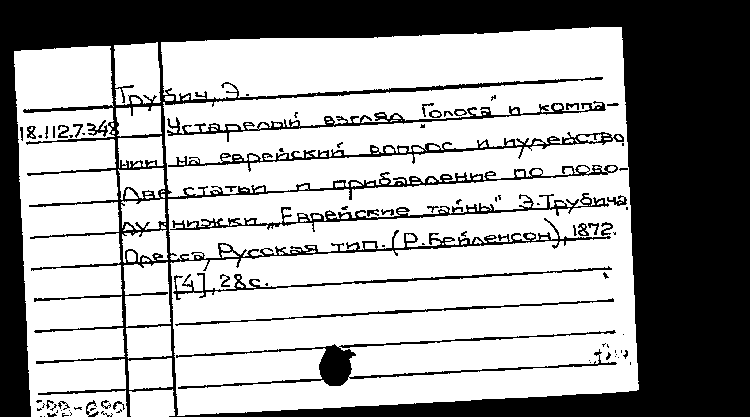 Трубич, Э.
18.112.7.348 Устарелый взгляд "Голоса" и компа-
нии на еврейский вопрос и иудейство
Две статьи и прибавление по пово-
ду книжки „Еврейские тайны" Э. Трубича
Одесса, Русская тип. (Р. Бейленсон), 1872.
[4], 28 с.